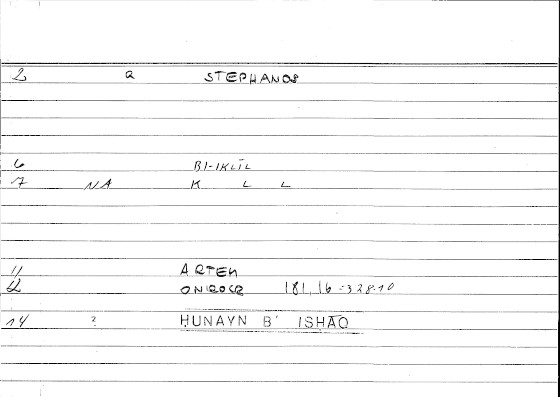 2 a STEPHANOS
6 BI-IKLĪL
7 NA K L L
11 ARTEM
12 ONIROCR 181,16 = 328.10
14 ? ḤUNAYN B' ISḤĀQ